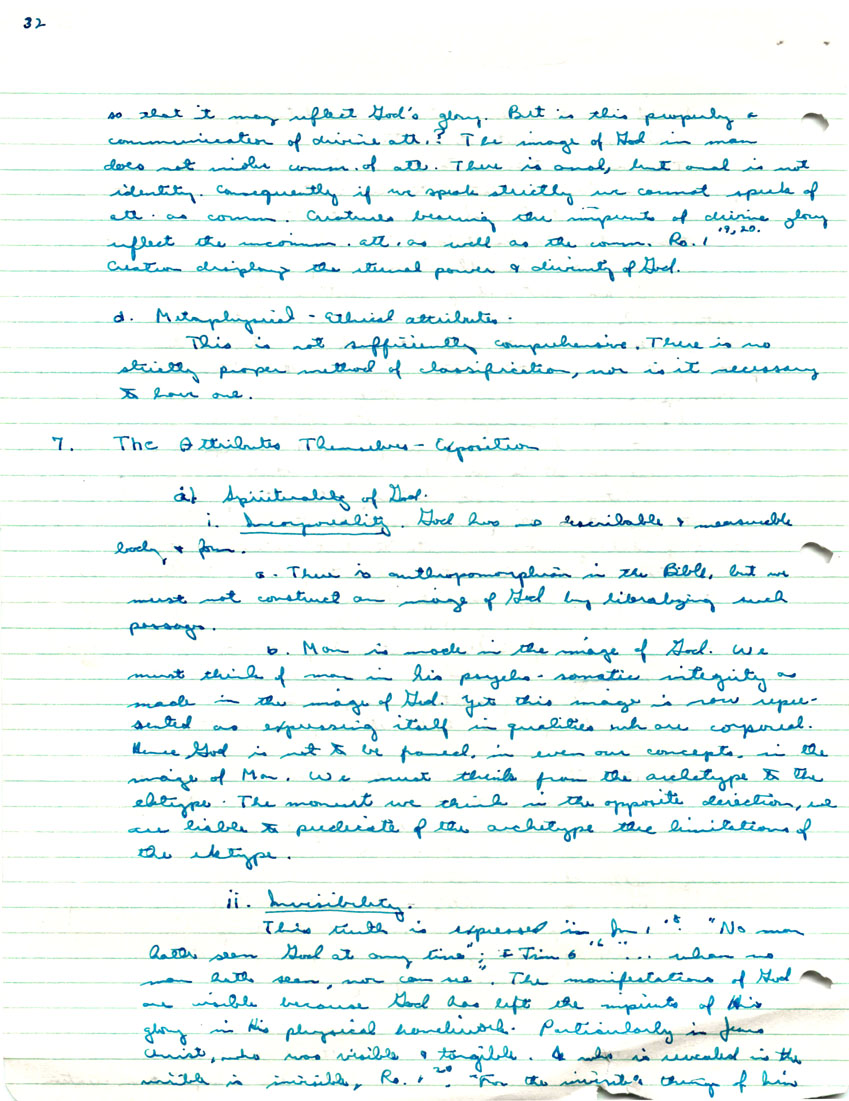 32
so that it may reflect God's glory. But is this properly a
communication of divine att.? The image of God in man
does not involve commun. of att. There is anal, but anal is not
identity. Consequently if we speak strictly we cannot speak of
att. as comm. Creatures bearing the imprint of divine glory
reflect the incomm. att. as well as the comm. Ro. 1 19, 20.
Creation displays the eternal power & divinity of God.
d. Metaphysical - Ethical attributes.
This is not sufficiently comprehensive. There is no
strictly proper method of classification, nor is it necessary
to have one.
7. The Attributes Themselves - Exposition
a) Spirituality of God.
i. Incorporeality. God has no describable & measurable
body, & form.
a. There is anthropomorphism in the Bible, but we
must not construct an image of God by literalizing such
passages.
b. Man is made in the image of God. We
must think of man in his psycho-somatic integrity as
made in the image of God. Yet this image is now repre-
sented as expressing itself in qualities wh are corporeal.
Hence God is not to be framed, in even our concepts, in the
image of Man. We must think from the archetype to the
ektype. The moment we think in the opposite direction, we
are liable to predicate of the archetype the limitations of
the ektype.
ii. Invisibility.
This truth is expressed in Jn 1 18. "No man
hath seen God at any time"; I Tim 6 16 "... whom no
man hath seen, nor can see". The manifestations of God
are visible because God has left the imprints of His
glory in His physical handiwork. Particularly in Jesus
Christ, who was visible & tangible. who is revealed in the
visible is invisible, Ro. 1 20. "For the invisible things of him